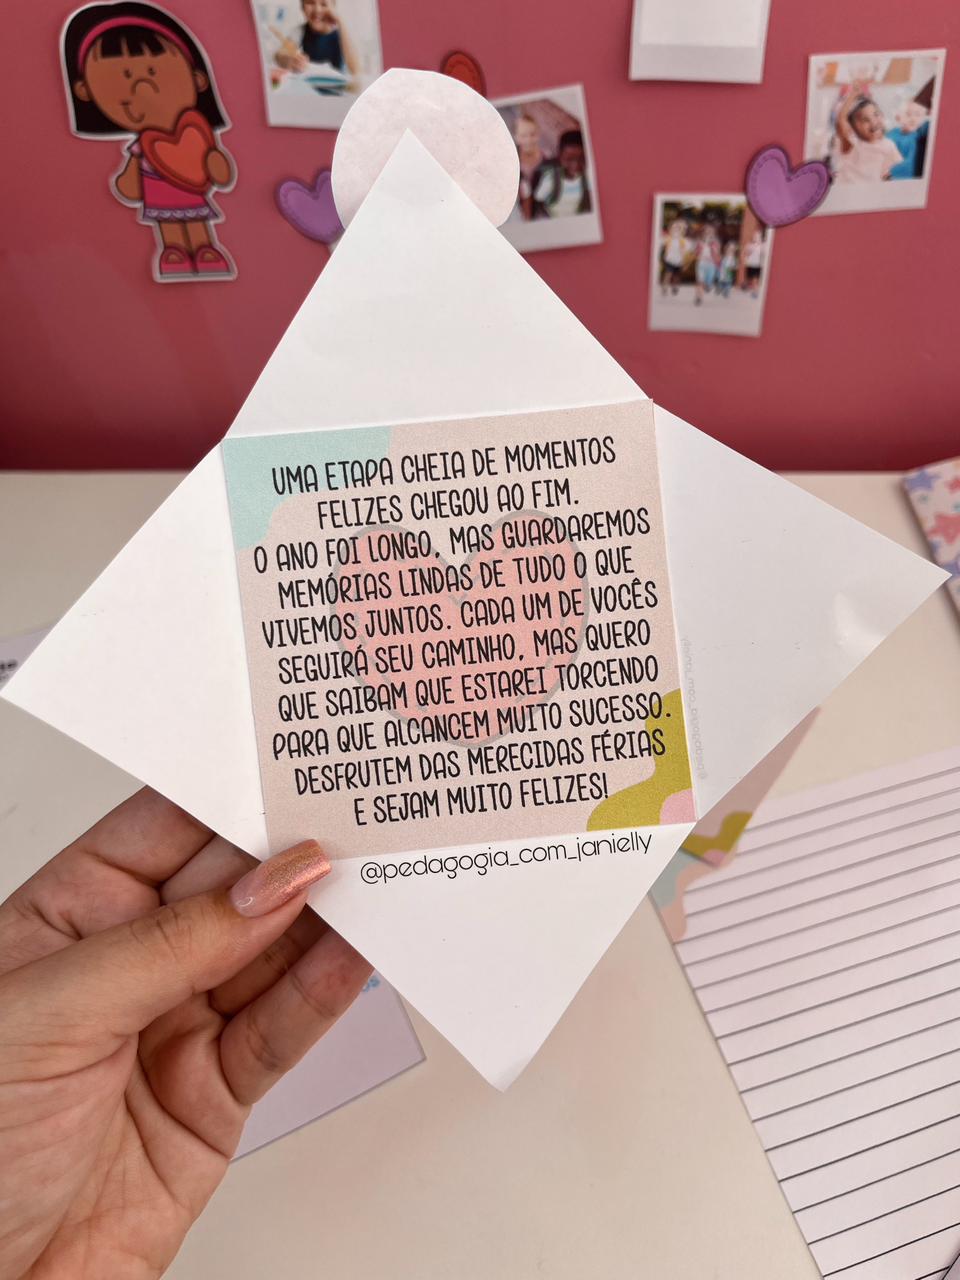 UMA ETAPA CHEIA DE MOMENTOS
FELIZES CHEGOU AO FIM.
O ANO FOI LONGO, MAS GUARDAREMOS
MEMÓRIAS LINDAS DE TUDO O QUE
VIVEMOS JUNTOS. CADA UM DE VOCÊS
SEGUIRÁ SEU CAMINHO, MAS QUERO
QUE SAIBAM QUE ESTAREI TORCENDO
PARA QUE ALCANCEM MUITO SUCESSO.
DESFRUTEM DAS MERECIDAS FÉRIAS
E SEJAM MUITO FELIZES!
@pedagogia_com_janielly
@pedagogia_com_janielly